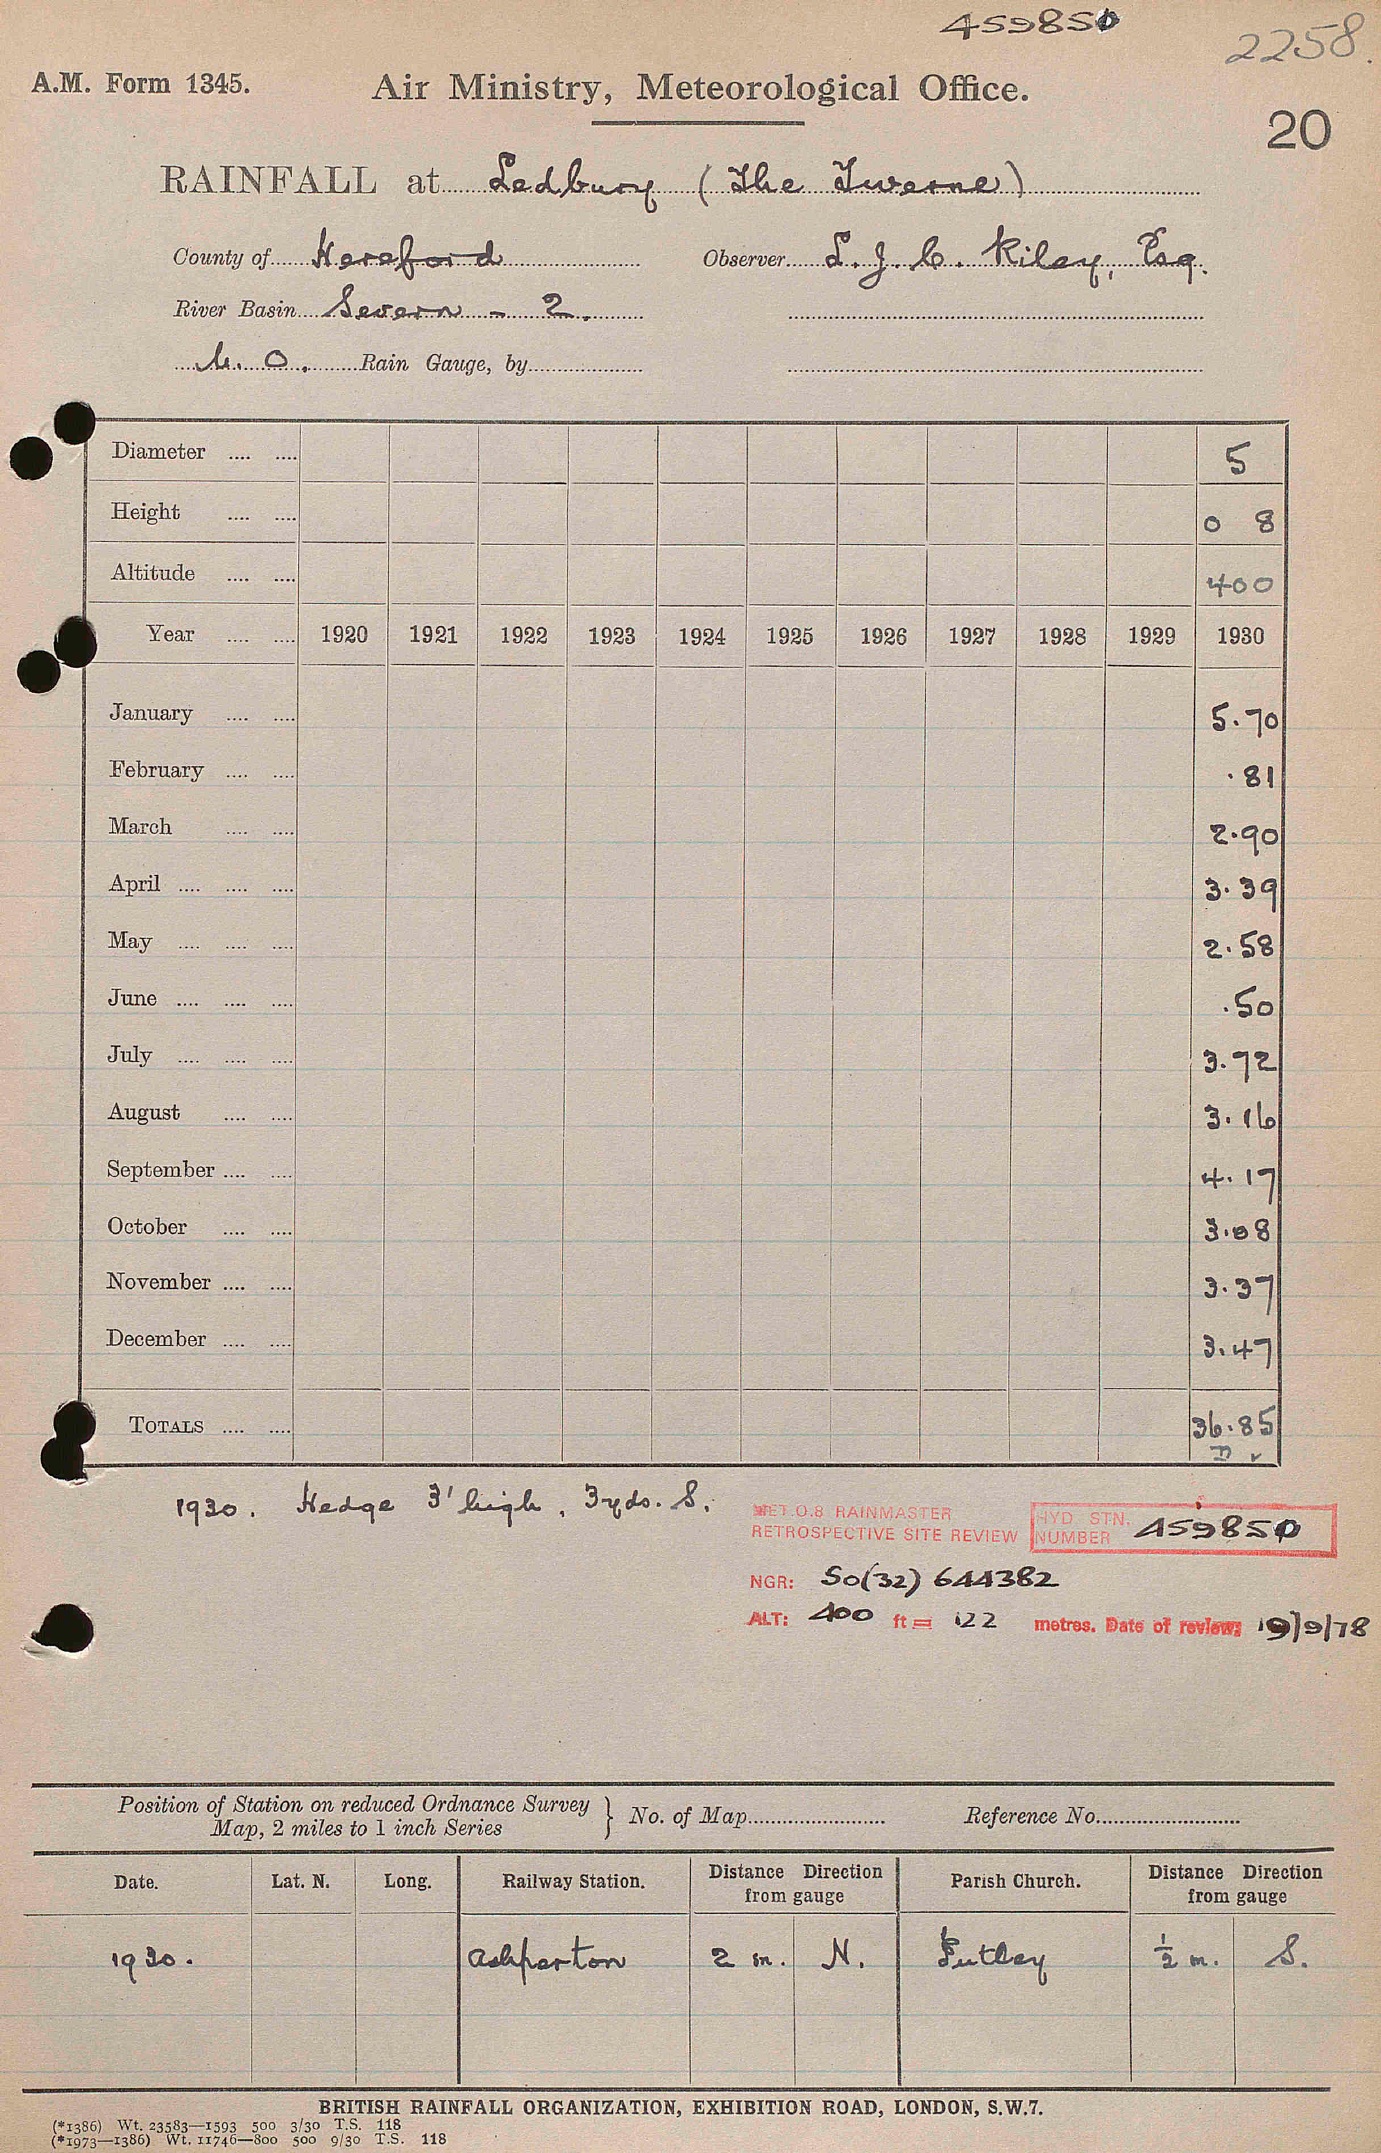 459850
2258.
A.M. Form 1345. Air Ministry, Meteorological Office.
20
RAINFALL at Ledbury (The Tuerne)
County of Hereford Observer L. J. C. Riley, Esq.
River Basin Severn – 2.
M. O. Rain Gauge, by
Diameter .... .... 5
Height .... .... 0 8
Altitude .... .... 400
Year .... .... 1920 1921 1922 1923 1924 1925 1926 1927 1928 1929 1930
January .... .... 5.70
February .... .... .81
March .... .... 2.90
April .... .... .... 3.39
May .... .... .... 2.58
June .... .... .... .50
July .... .... .... 3.72
August .... .... 3.16
September .... .... 4.17
October .... .... 3.08
November .... .... 3.37
December .... .... 3.47
TOTALS .... .... 36.85
1930. Hedge 3' high, 3yds. S.
MET.O.8 RAINMASTER
RETROSPECTIVE SITE REVIEW
HYD. STN.
NUMBER 459850
NGR: SO(32) 644382
ALT: 400 ft = 122 metres. Date of review: 19/9/78
Position of Station on reduced Ordnance Survey
Map, 2 miles to 1 inch Series } No. of Map Reference No.
Date. Lat. N. Long. Railway Station. Distance Direction
from gauge Parish Church. Distance Direction
from gauge
1930. Ashperton 2 m. N. Putley ½ m. S.
BRITISH RAINFALL ORGANIZATION, EXHIBITION ROAD, LONDON, S.W.7.
(*1386) Wt. 23583—1593 500 3/30 T.S. 118
(*1973—1386) Wt. 11746—800 500 9/30 T.S. 118